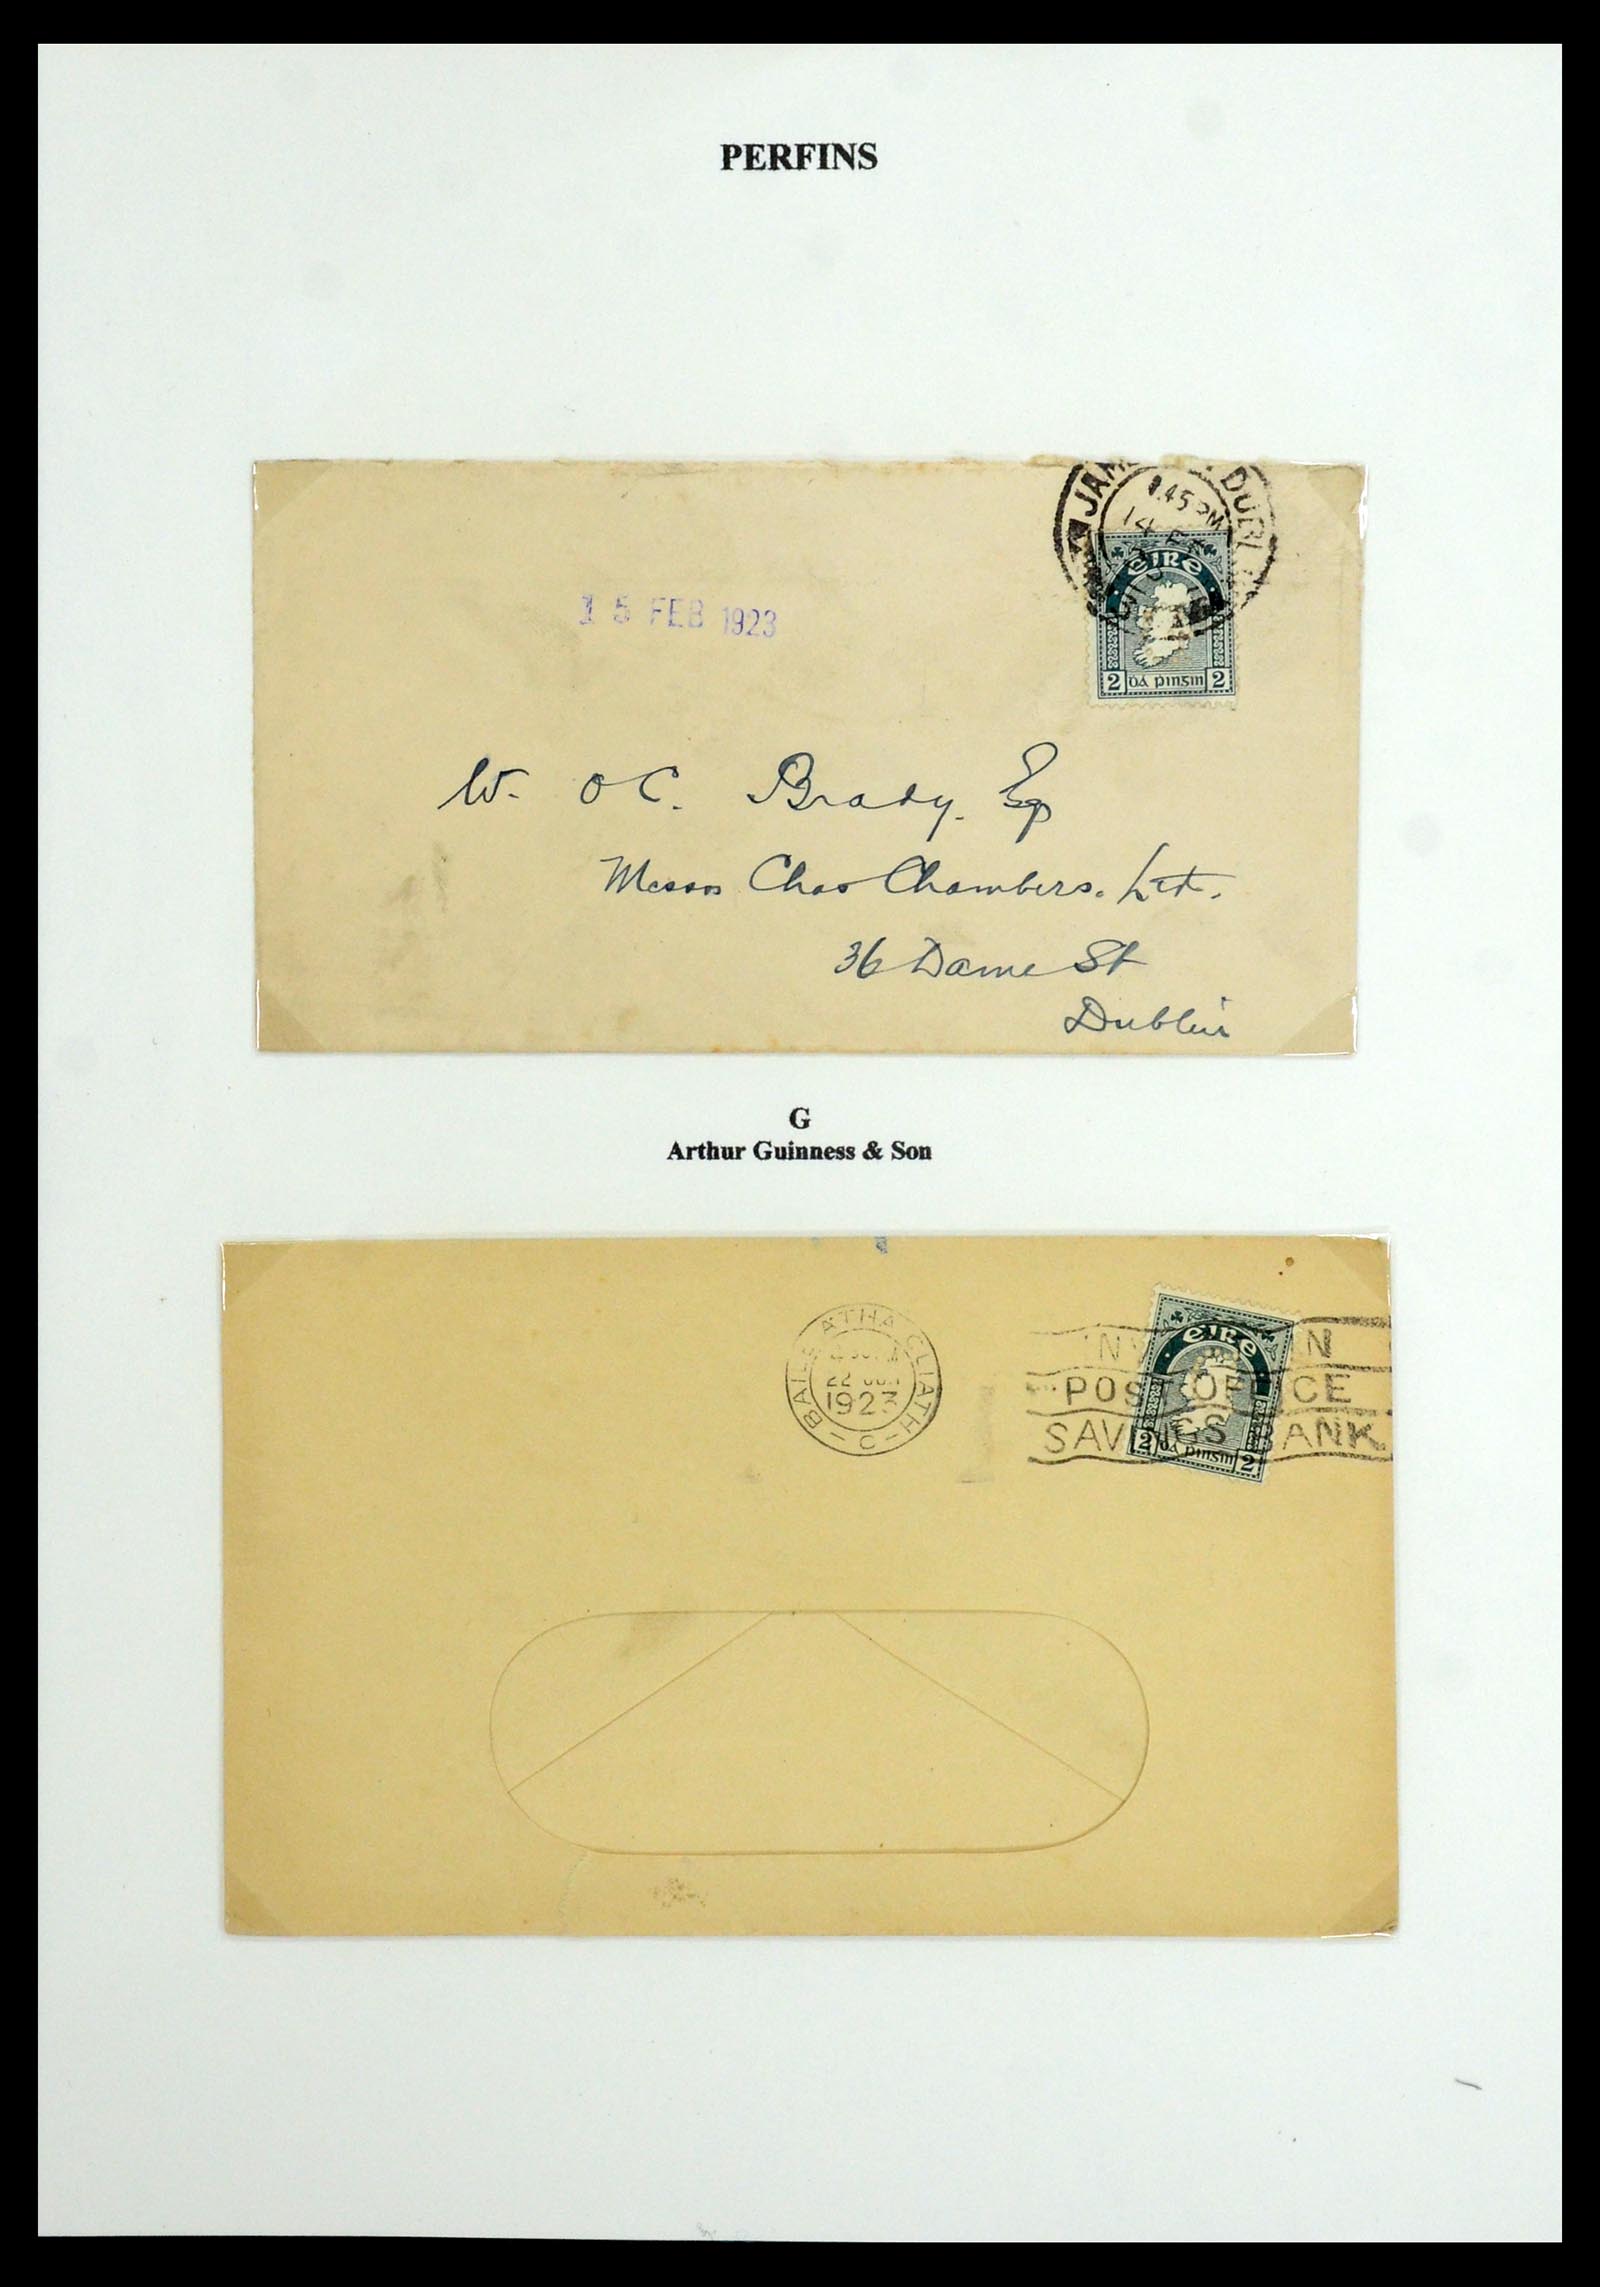 PERFINS
DUBL
.45 PM
14
EIRE
15 FEB 1923
2 DÁ PINGIN 2
W. O C. Brady. Esq
Messrs Chas Chambers. Ltd.
36 Dame St
Dublin
G
Arthur Guinness & Son
BAILE ATHA CLIATH - C -
22
1923
EIRE
POST OFFICE
SAVINGS BANK
2 DÁ PINGIN 2